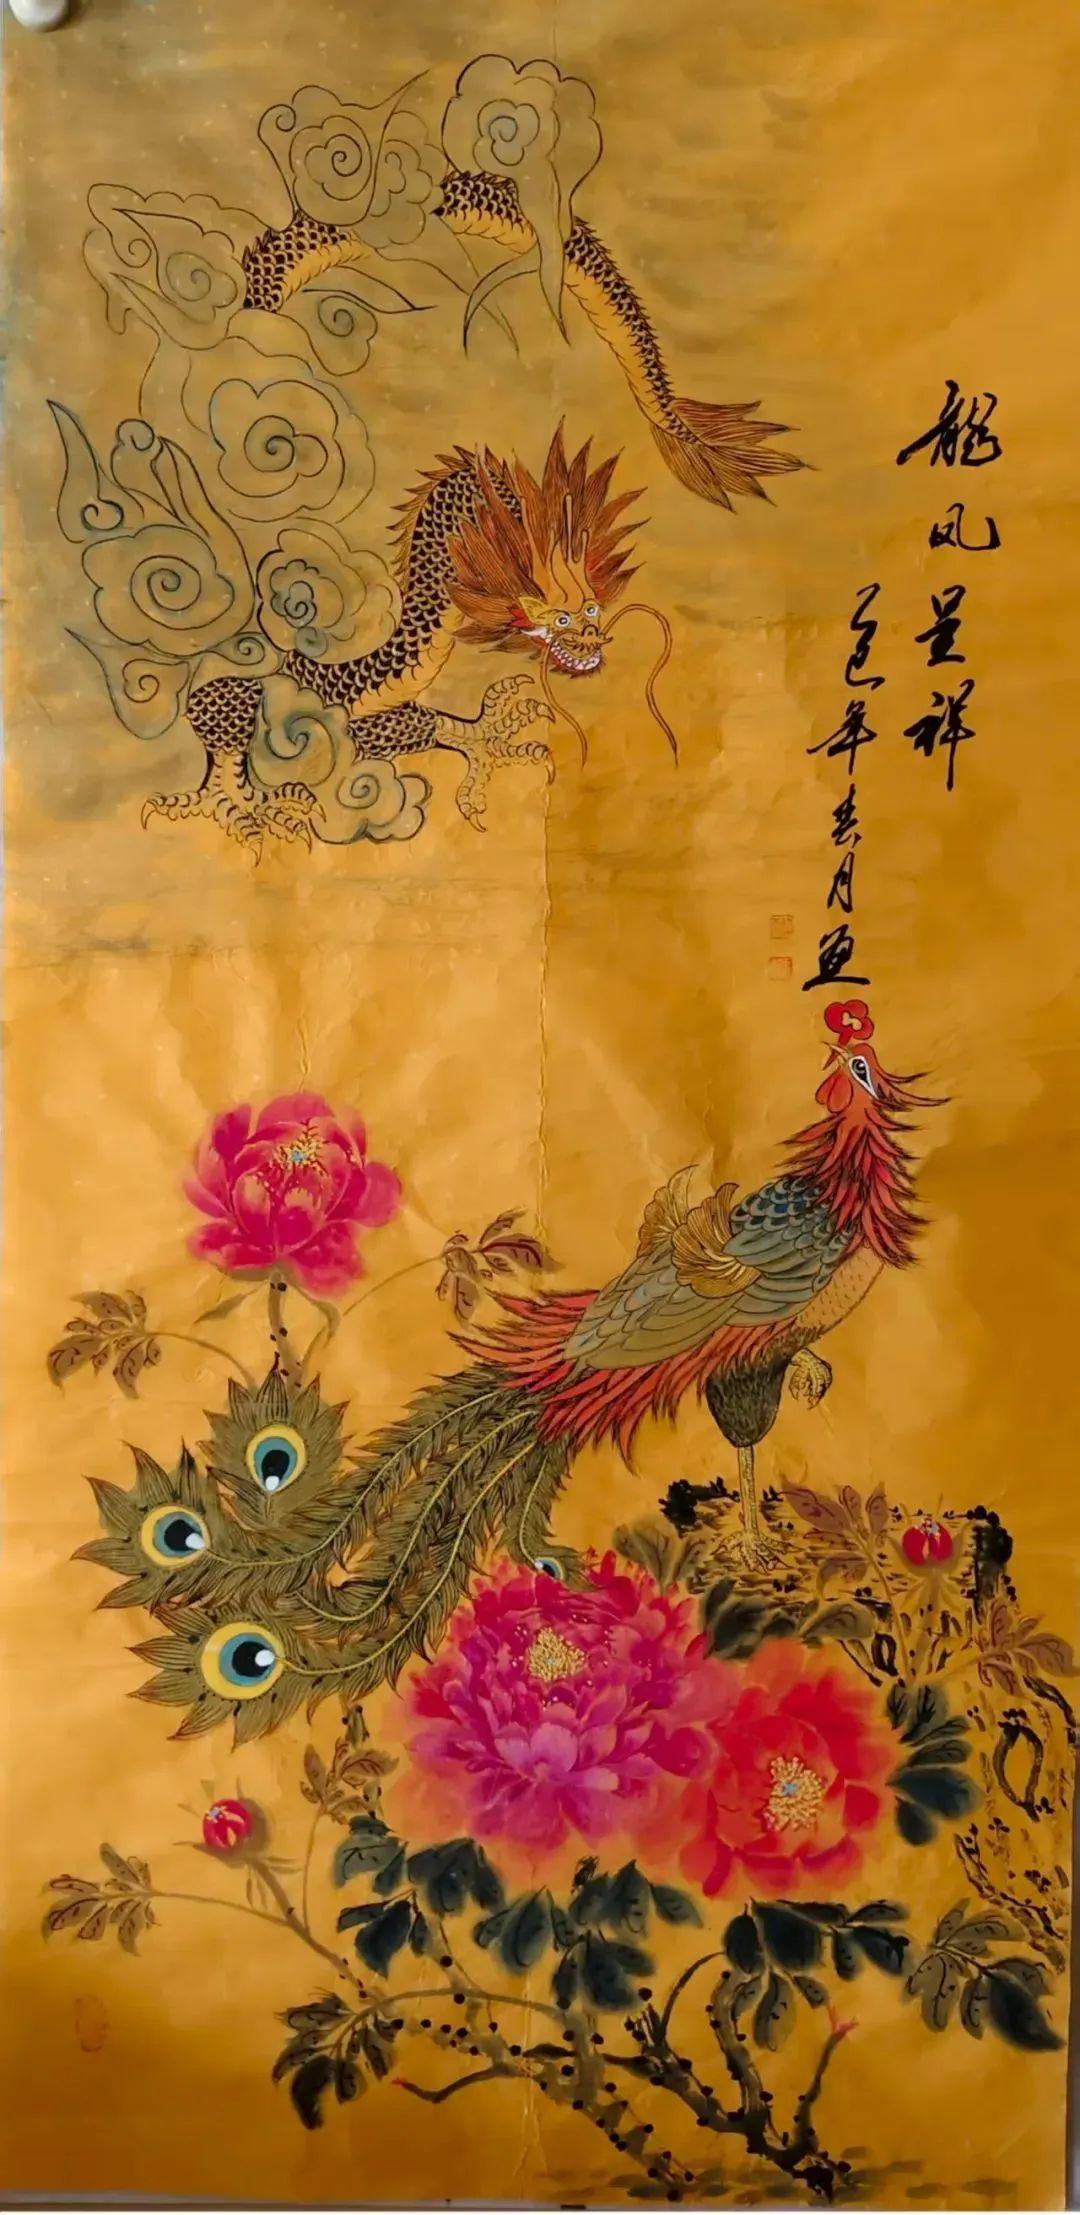 龍凤呈祥
乙巳年春月画